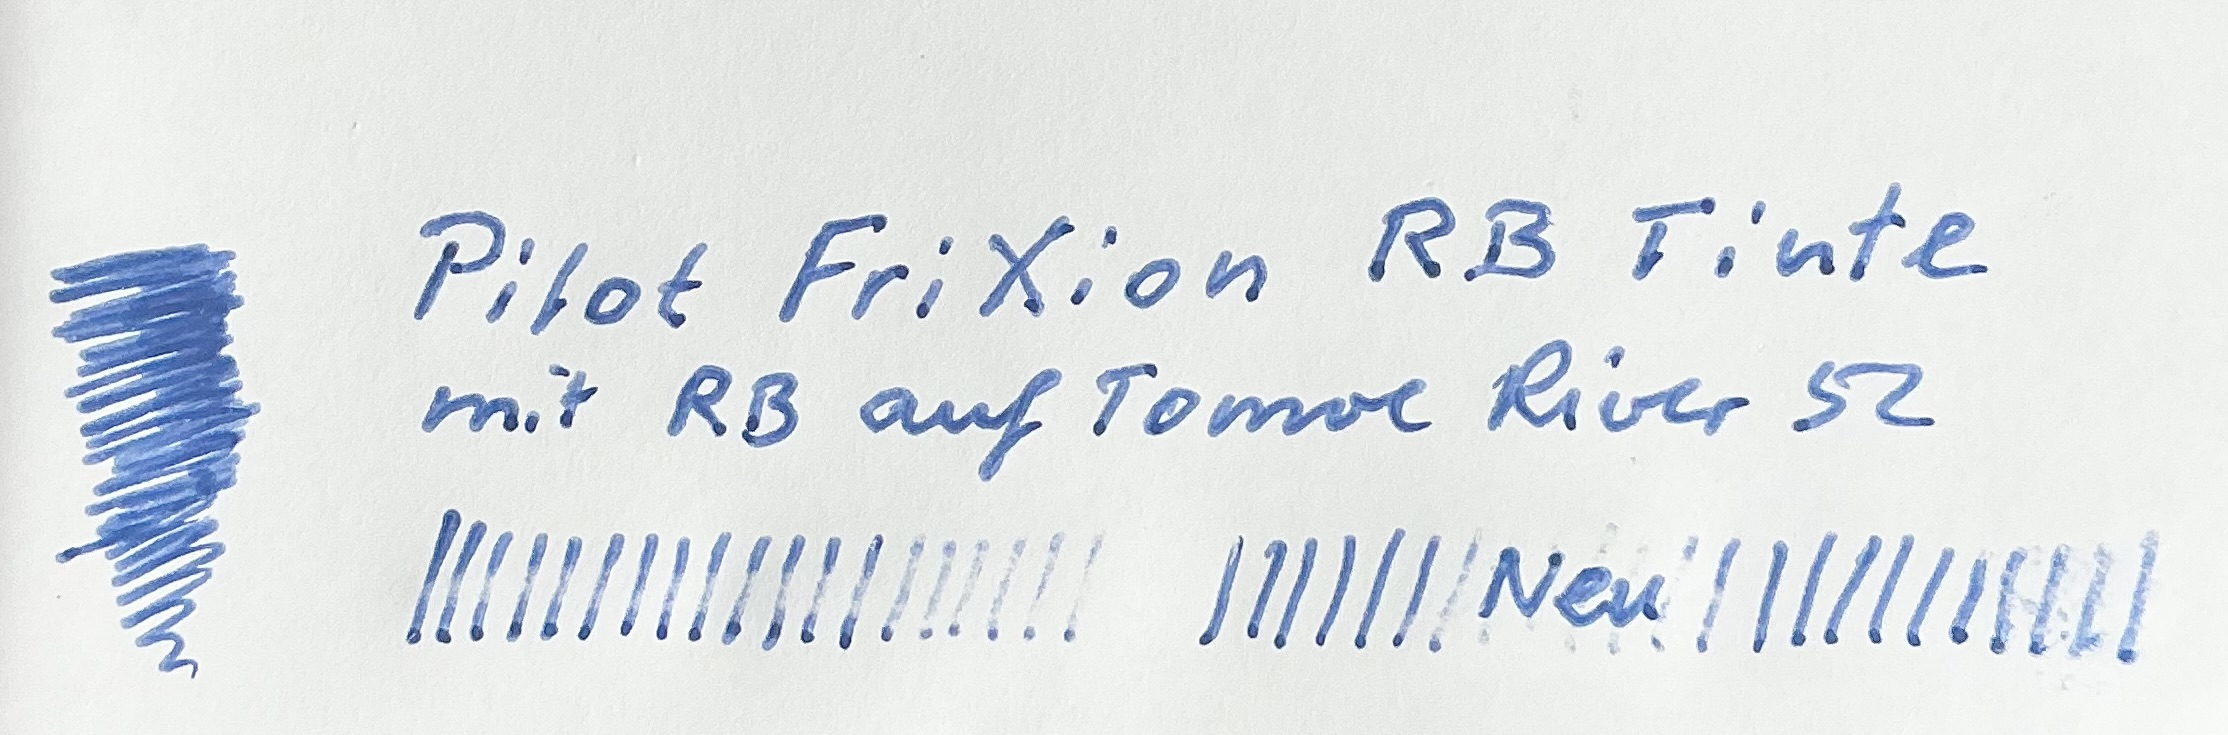 Pilot FriXion RB Tinte
mit RB auf Tomoe River 52
Neu